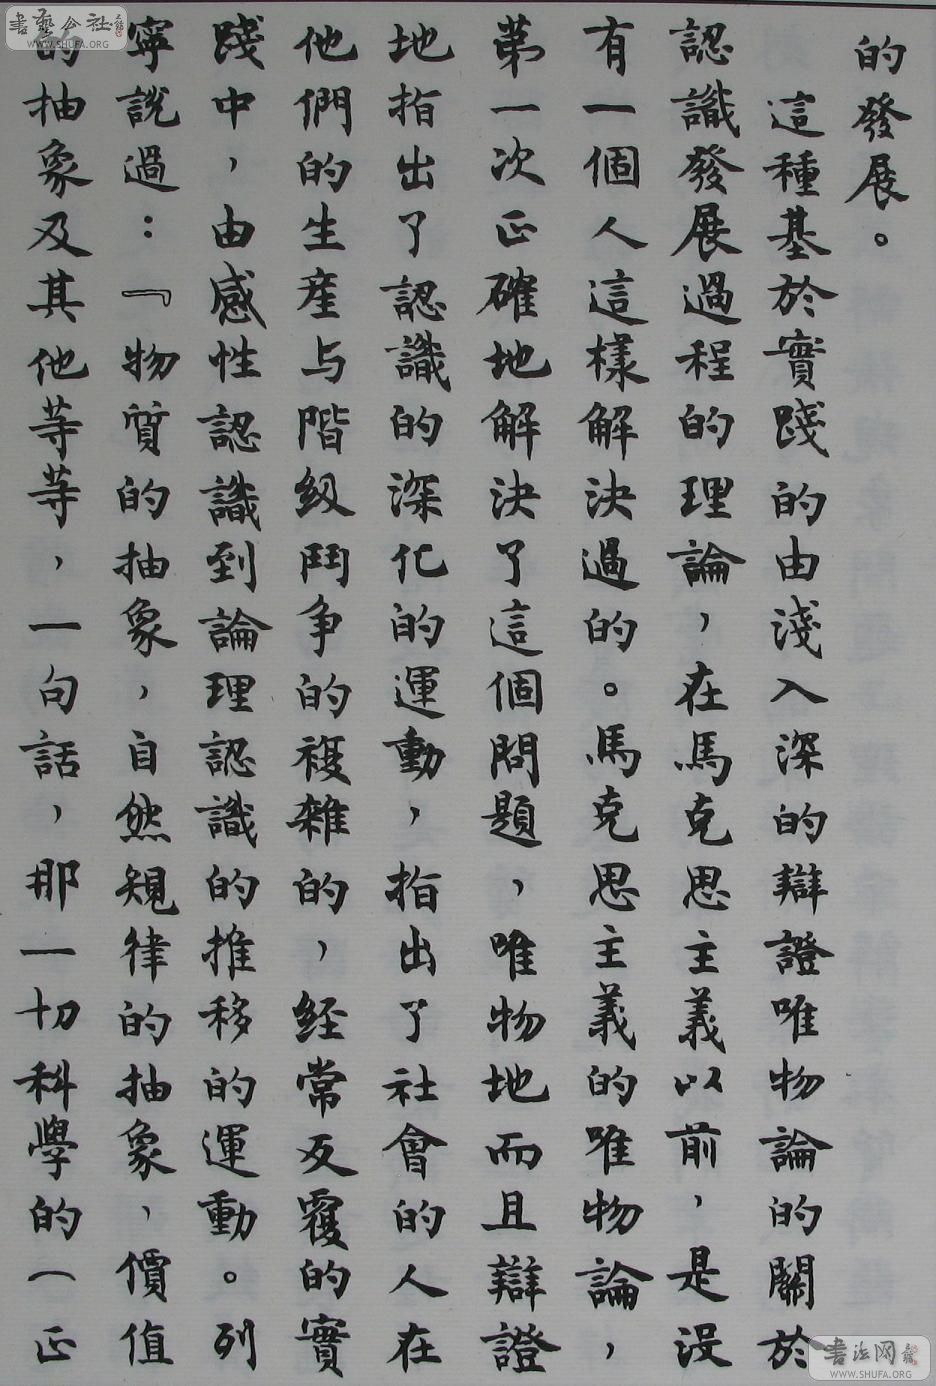 的發展。
這種基於實踐的由淺入深的辯證唯物論的關於
認識發展過程的理論，在馬克思主義以前，是沒
有一個人這樣解決過的。馬克思主義的唯物論，
第一次正確地解決了這個問題，唯物地而且辯證
地指出了認識的深化的運動，指出了社會的人在
他們的生產与階級鬥爭的複雜的，経常反覆的實
踐中，由感性認識到論理認識的推移的運動。列
寧說過：『物質的抽象，自然規律的抽象，價值
的抽象及其他等等，一句話，那一切科學的（正
書藝公社
WWW.SHUFA.ORG
書法网
WWW.SHUFA.ORG